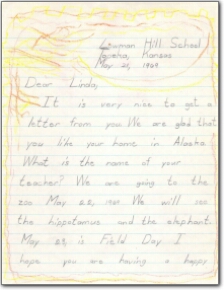 Lowman Hill School
Topeka, Kansas
May 21, 1969
Dear Linda,
It is very nice to get a
letter from you We are glad that
you like your home in Alaska
What is the name of your
teacher? We are going to the
zoo May 22, 1969 We will see
the hippotamus and the elephant.
May 23, is Field Day I
hope you are having a happy